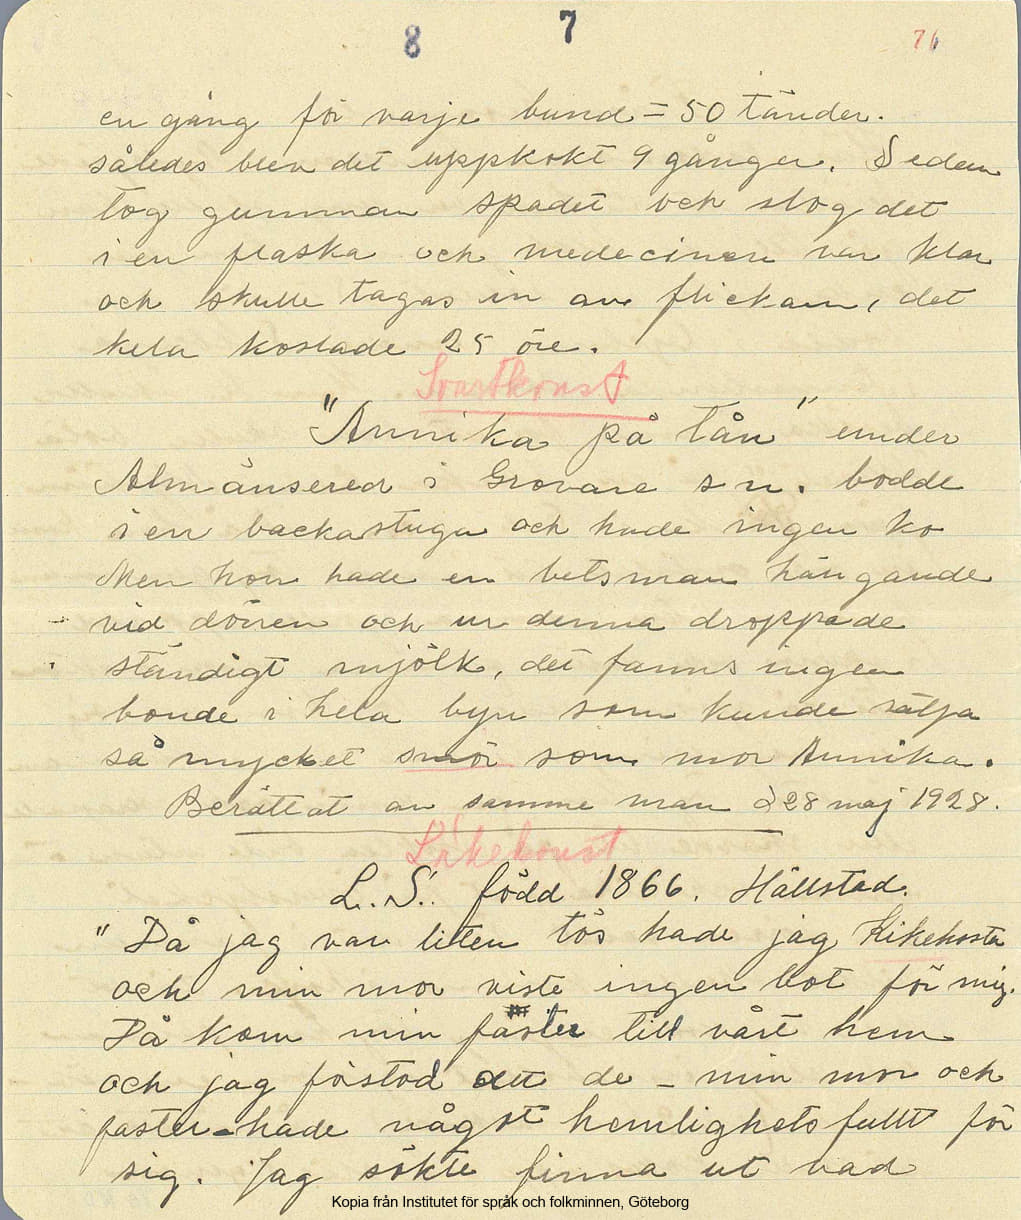 8 7 76
en gång för varje bund = 50 tänder.
således blev det uppkokt 9 gånger. Sedan
tog gumman spadet och slog det
i en flaska och medecinen var klar
och skulle tagas in av flickan, det
hela kostade 25 öre.
Svartkonst
"Annika på Tån" under
Almänsered i Grovare sn. bodde
i en backastuga och hade ingen ko
Men hon hade en betsman hängande
vid dörren och ur denna droppade
ständigt mjölk, det fanns ingen
bonde i hela byn som kunde sälja
så mycket smör som mor Annika.
Berättat av samme man d 28 maj 1928.
Läkekonst
L. S. född 1866. Hällstad.
"Då jag var liten tös hade jag Kikehosta
och min mor viste ingen bot för mig.
Då kom min faster till vårt hem
och jag förstod att de – min mor och
faster – hade något hemlighetsfullt för
sig. Jag sökte finna ut vad
Kopia från Institutet för språk och folkminnen, Göteborg